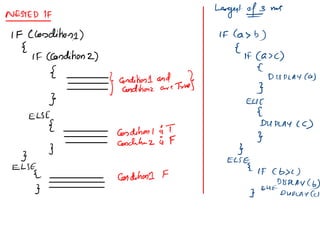 NESTED IF
IF (Condition1)
{
IF (Condition2)
{
Condition1 and
Condition2 are True
}
ELSE
{
Condition1 is T
Condition2 is F
}
}
ELSE
{
Condition1 F
}
Largest of 3 nos
IF (a>b)
{
IF (a>c)
{
DISPLAY (a)
}
ELSE
{
DISPLAY (c)
}
}
ELSE
{ IF (b>c)
DISPLAY (b)
ELSE
} DISPLAY (c)